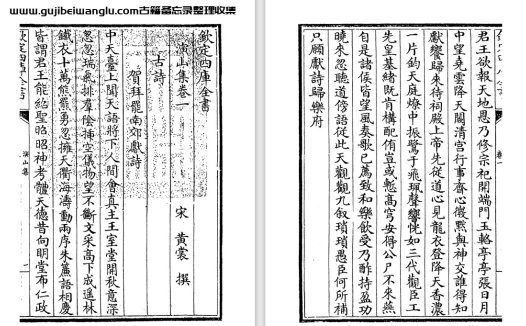 www.gujibeiwanglu.com古籍备忘录整理收集
欽定四庫全書
演山集卷一
宋 黄裳 撰
古詩
賀拜罷南郊獻詩
中天臺上聞天語將下人間會真主王室堂開秋意深
忽忽瑞氣排羣陰掃空儀物望不斷文采髙下成遥林
鐵衣十萬熊羆勇忽擁天衢海濤動兩序朱簾語相慶
皆謂君王能紹聖昭昭神考體天德昔向明堂布仁政
演山集
君王欲報天地恩乃修宗祀開端門玉輅亭亭張日月
中望堯雲降天閽清宫行事齋心微黙與神交誰得知
獻饗歸来待祠殿上帝先從道心見龍衣登降天香濃
一片鈞天庭燎中振鷺于飛珮聲響恍如三代觀臣工
先皇基緒既肯構配侑豈或慙髙穹安得公尸不來燕
自是諸侯皆望風奏歌已薦致和樂飲受乃酢持盈功
曉來忽聽道傍語從此天觀觀九叙瑣瑣愚臣何所補
只願獻詩歸樂府